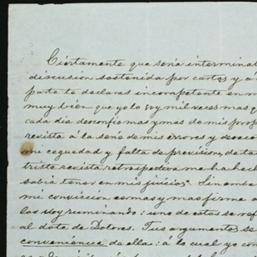 Ciertamente que sería interminab
discusion sostenida por cartas y á
parte te declaras incompetente en m
muy bien que yo lo soy mil veces mas q
cada dia desconfio mas y mas de mis prop
revista á la serie de mis errores y
mi ceguedad y falta de prevision, de ta
triste revista retrospectiva me ha hech
sabia tener en mis juicios. Sin emb
mi conviccion es mas y mas firme a
los voy rumiando: uno de estos se ref
al dote de Dolores. Tus argumentos se
conveniencia de ellas: á lo cual yo con